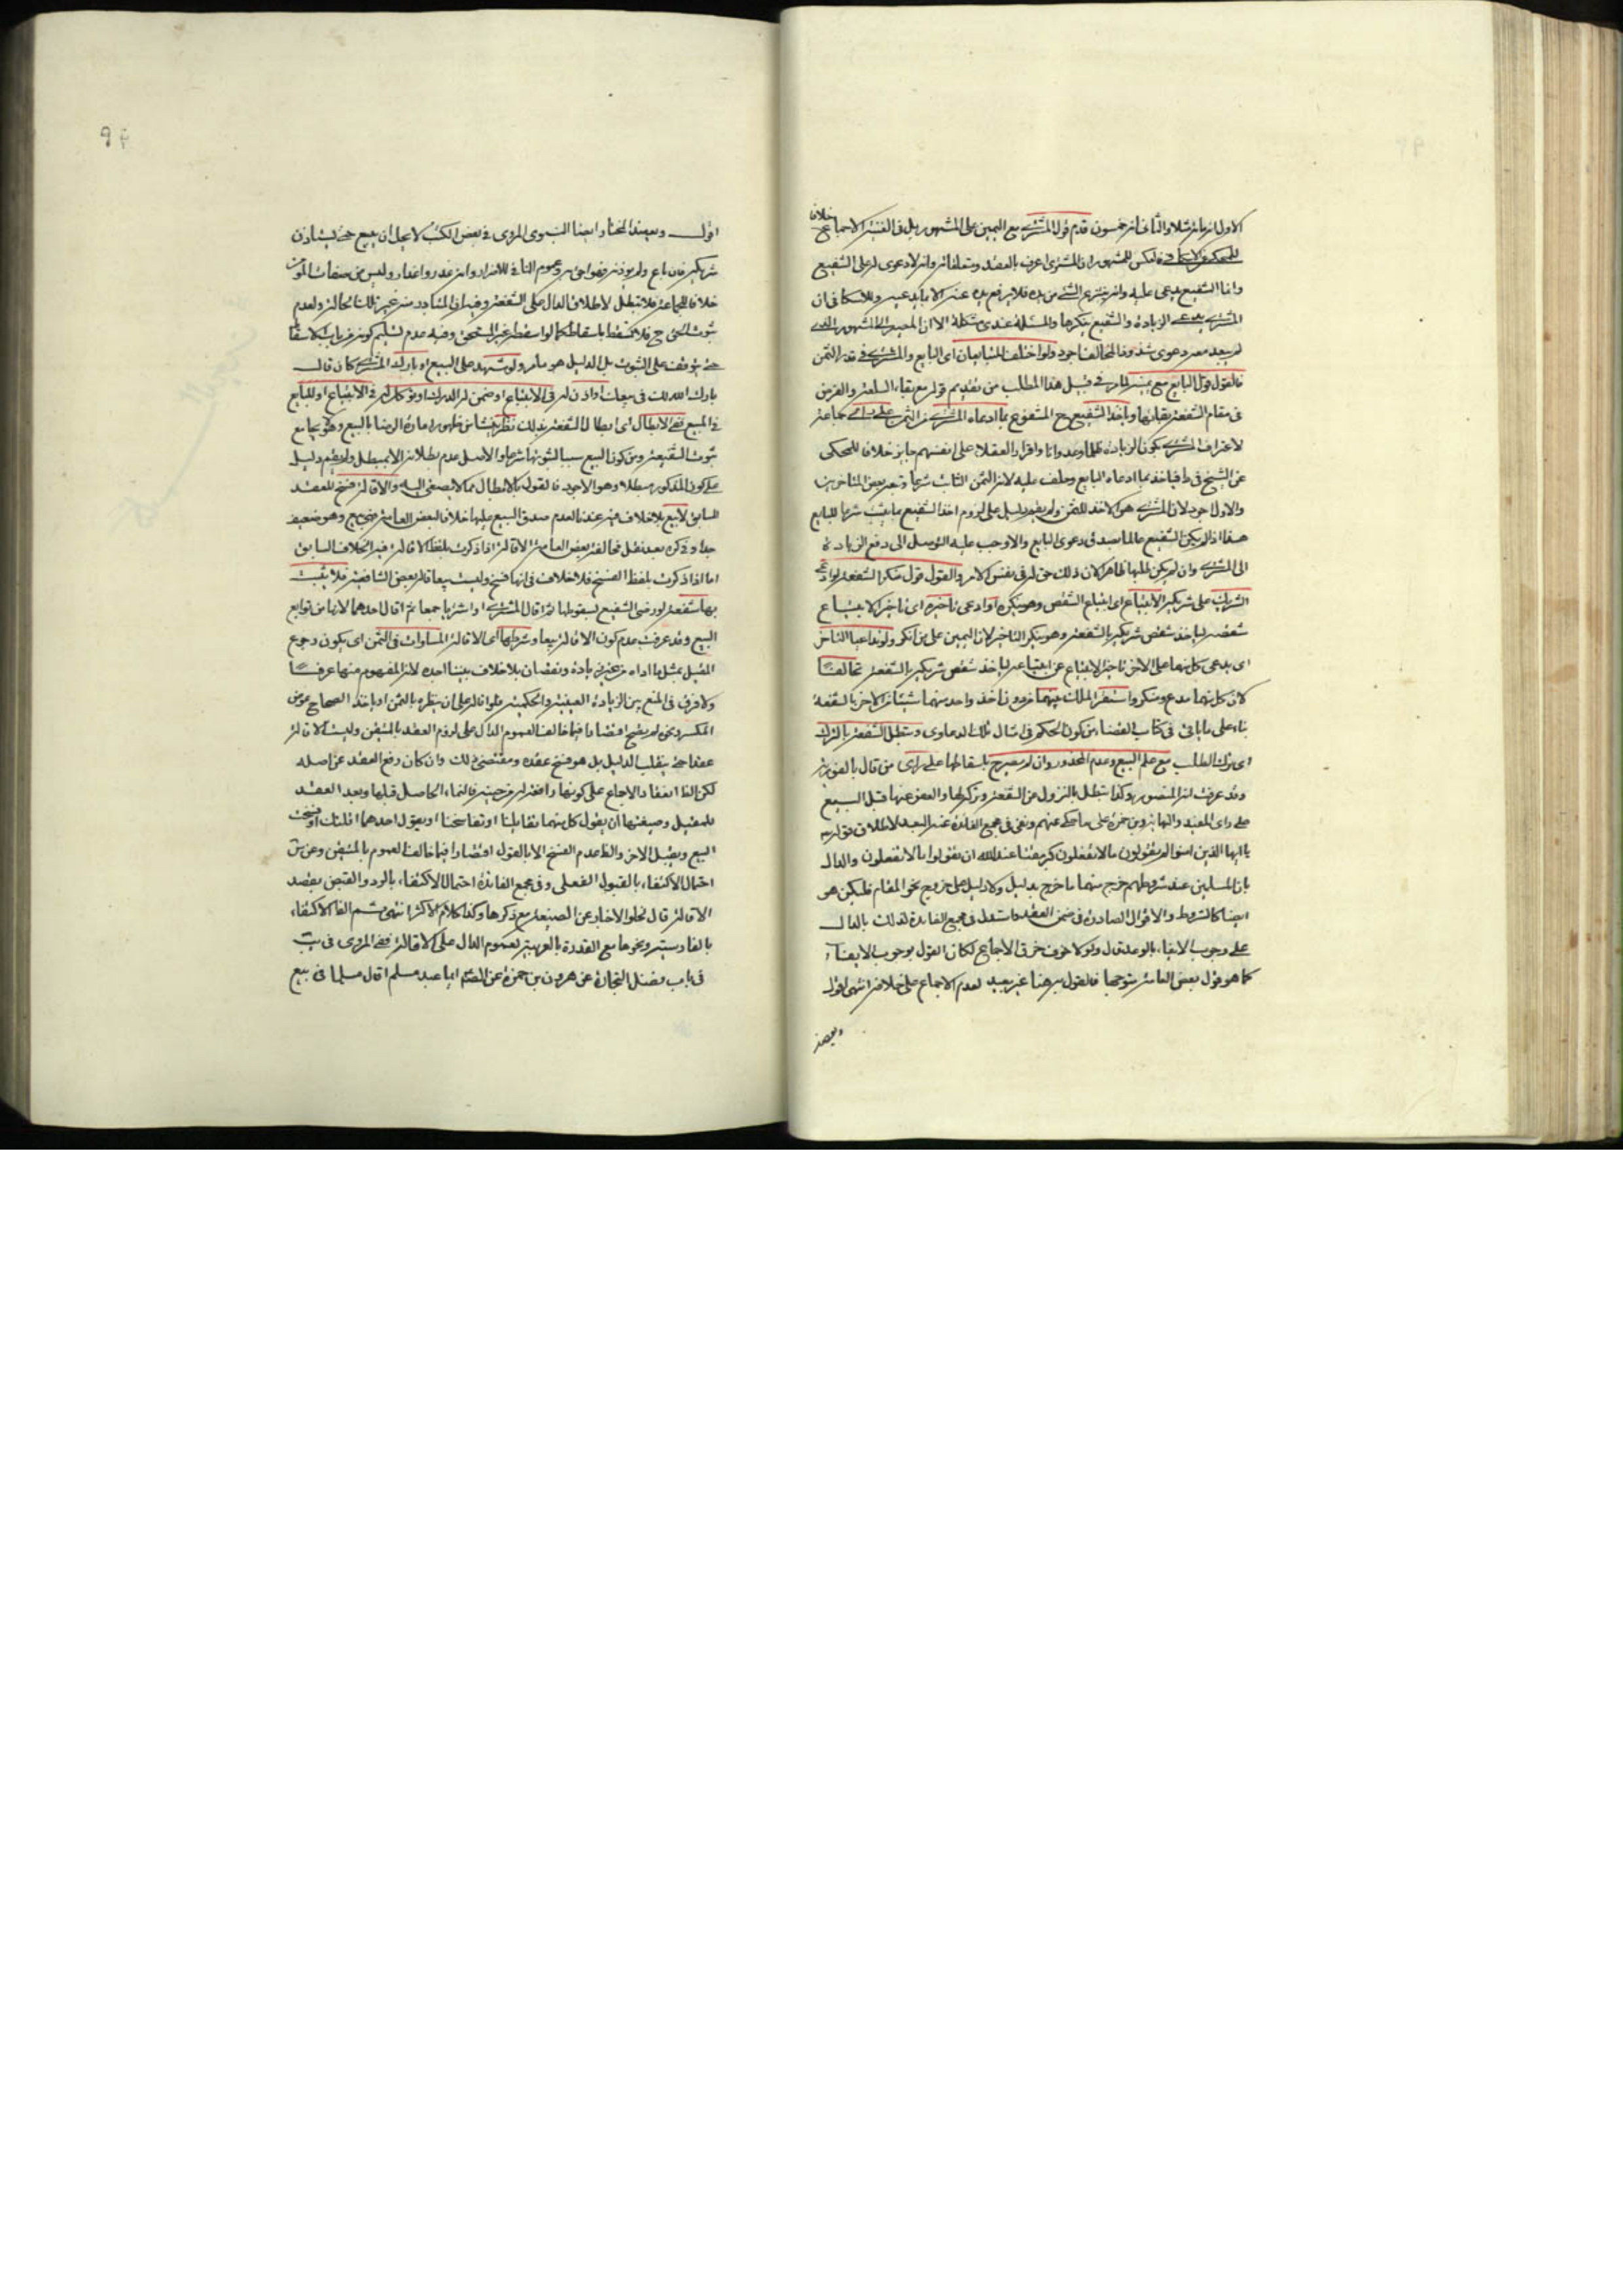 الاول انه بمائة مثلا والثاني انه خمسون قدم قول المشتري مع اليمين على المشهور بل في الغنية الاجماع خلافا
للمحكي الاسكافي فالعكس للمشهور ان المشتري اعرف بالعقد ومتعلقاته وانه لا دعوى له على الشفيع
وانما الشفيع يدعى عليه وانه ينتزع الشئ من يده فلا يرفع يده عنه الا بما يدعيه وللاسكافي ان
المشتري يدعي الزيادة والشفيع ينكرها والمسئلة عندي مشكلة الا ان المصير الى المشهور الذي
لم يبعد معه دعوى شذوذ المخالف اجود ولو اختلف المتبايعان اى البايع والمشتري في قدر الثمن
فالقول قول البايع مع يمينه لما مر في قبيل هذا المطلب من تقديم قوله مع بقاء السلعة والفرض
في مقام الشفعة بقائها وياخذ الشفيع ح المشفوع بما ادعاه المشتري من الثمن على راى جماعة
لاعتراف المشتري بكون الزيادة ظلما وعدوانا واقرار العقلاء على انفسهم جايز خلافا للمحكي
عن الشيخ في ط فياخذ بما ادعاه البايع وحلف عليه لانه الثمن الثابت شرعا وتبعه بعض المتاخرين
والاول اجود لان المشتري هو الاخذ للثمن ولم يقم دليل على لزوم اخذ الشفيع بما يثبت شرعا للبايع
هذا اذا لم يكن الشفيع عالما بصدق دعوى البايع والا وجب عليه التوصل الى دفع الزيادة
الى المشتري وان لم يكن عليها ظاهرا لان ذلك حق له في نفس الامر والقول قول منكر الشفعة لو ادعى
الشريك على شريكه الابتياع اى ابتياع الشقص وهو ينكره او ادعى تاخيره اى تاخير الابتياع
شقصه لياخذ شقص شريكه بالشفعة وهو ينكر التاخير لان اليمين على من انكر ولو تداعيا التاخر
اى يدعي كل منهما على الاخر تاخير الابتياع عن ابتياعه لياخذ شقص شريكه بالشفعة تحالفا
لان كل منهما مدع ومنكر واستقر الملك بينهما من دون اخذ واحد منهما شيئا من الاخر بالشفعة
بناء على ما ياتي في كتاب القضاء من كون الحكم في امثال تلك الدعاوى وتبطل الشفعة بالترك
اى بترك الطلب مع علم البيع وعدم المحذور وان لم يصرح باسقاطها على راى من قال بالفورية
وقد عرفت انه المنصور وكذا تبطل بالنزول عن الشفعة وتركها والعفو عنها قبل البيع
على راى المفيد والنهاية وبن حمزة على ما حكي عنهم ونفى في مجمع الفائدة عنه البعد لاطلاق قوله
يا ايها الذين امنوا لم تقولون ما لا تفعلون كبر مقتا عند الله ان تقولوا ما لا تفعلون والدال
بان المسلمين عند شروطهم خرج منهما ما خرج بدليل ولا دليل على خروج نحو المقام فليكن هو
ايضا كالشروط والاقوال الصادرة في ضمن العقد واستدل في مجمع الفائدة لذلك بالدال
على وجوب الايفاء بالوعد قال ولولا خوف خرق الاجماع لكان القول بوجوب الايفاء
كما هو قول بعض العامة متوجها فالقول به هنا غير بعيد لعدم الاجماع على خلافه انتهى اقول
ويعضد
اقول ويعضد المختار ايضا النبوي المروي في بعض الكتب لا يحل ان يبيع حتى يستاذن
شريكه فان باع ولم يوذنه فهو احق به وعموم النافي للاضرار وانه غدر واغدار وليس من صفات المؤمن
خلافا للجماعة فلا تبطل لاطلاق الدال على الشفعة وفيه ان المتبادر منه غير تلك الحالة ولعدم
ثبوت الحق ح فلا تسقط باسقاطه كما لو اسقط غير المستحق وفيه عدم تسليم كونه من باب الاسقاط
حتى يتوقف على الثبوت بل الدليل هو ما مر ولو شهد على البيع او بارك المشتري كان قال
بارك الله لك في بيعك او اذن له في الابتياع او ضمن له الدرك او توكل له في الابتياع او للبايع
في المبيع ففي الابطال اى ابطال الشفعة بذلك نظر ينشا من ظهور امارة الرضا بالبيع وهو يجامع
ثبوت الشفعة ومن كون البيع سببا لثبوتها شرعا والاصل عدم بطلانه الا بمبطل ولم يقم دليل
على كون المذكور مبطلا وهو الاجود فالقول بالابطال مما لا يصغى اليه والاقالة فسخ للعقد
السابق لا بيع بلا خلاف فيه عندنا لعدم صدق البيع عليها خلافا لبعض العامة فهي بيع وهو ضعيف
جدا وفي كره بعد نقل مخالفة بعض العامة الاقالة اذا ذكرت بلفظ الاقالة فيه الخلاف السابق
اما اذا ذكرت بلفظ الفسخ فلا خلاف في انها فسخ وليست بيعا قاله بعض الشافعية فلا يثبت
بها شفعة لو رضى الشفيع بسقوطها ثم اقال المشتري او اشتريا جمعا ثم اقال احدهما لانها من توابع
البيع وقد عرفت عدم كون الاقالة بيعا وشرطها اى الاقالة المساوات في الثمن اى يكون رجوع
المقيل بمثل ما اداه من غير زيادة ونقصان بلا خلاف بيننا اجده لانه المفهوم منها عرفا
ولا فرق في المنع بين الزيادة العينية والحكمية فلو اقاله على ان ينظره بالثمن او ياخذ الصحاح عوض
المكسر ونحوه لم يصح اقتصارا فيما خالف العموم الدال على لزوم العقد بالمتيقن وليست الاقالة
عقدا حتى ينقلب الدليل بل هو فسخ عقد ومقتضى ذلك وان كان رفع العقد عن اصله
لكن الظ انعقاد الاجماع على كونها رافعة له من حينه فالنماء الحاصل قبلها وبعد العقد
للمقيل وصيغتها ان يقول كل منهما تقايلنا او تفاسخنا او يقول احدهما اقلتك او فسخت
البيع ويقبل الاخر والظ عدم الفسخ الا بالقول اقتصارا فيما خالف العموم بالمتيقن وعن س
احتمال الاكتفاء بالقبول الفعلي وفي مجمع الفائدة احتمال الاكتفاء بالرد والقبض بقصد
الاقالة قال لخلو الاخبار عن الصيغة مع ذكرها وكذا كلام الاكثر انتهى ثم الظ الاكتفاء
بالفارسية ونحوها مع القدرة بالعربية لعموم الدال على الاقالة ففي المروي في يب
في باب فضل التجارة عن هرون بن حمزة عن الصم ايما عبد مسلم اقال مسلما في بيع